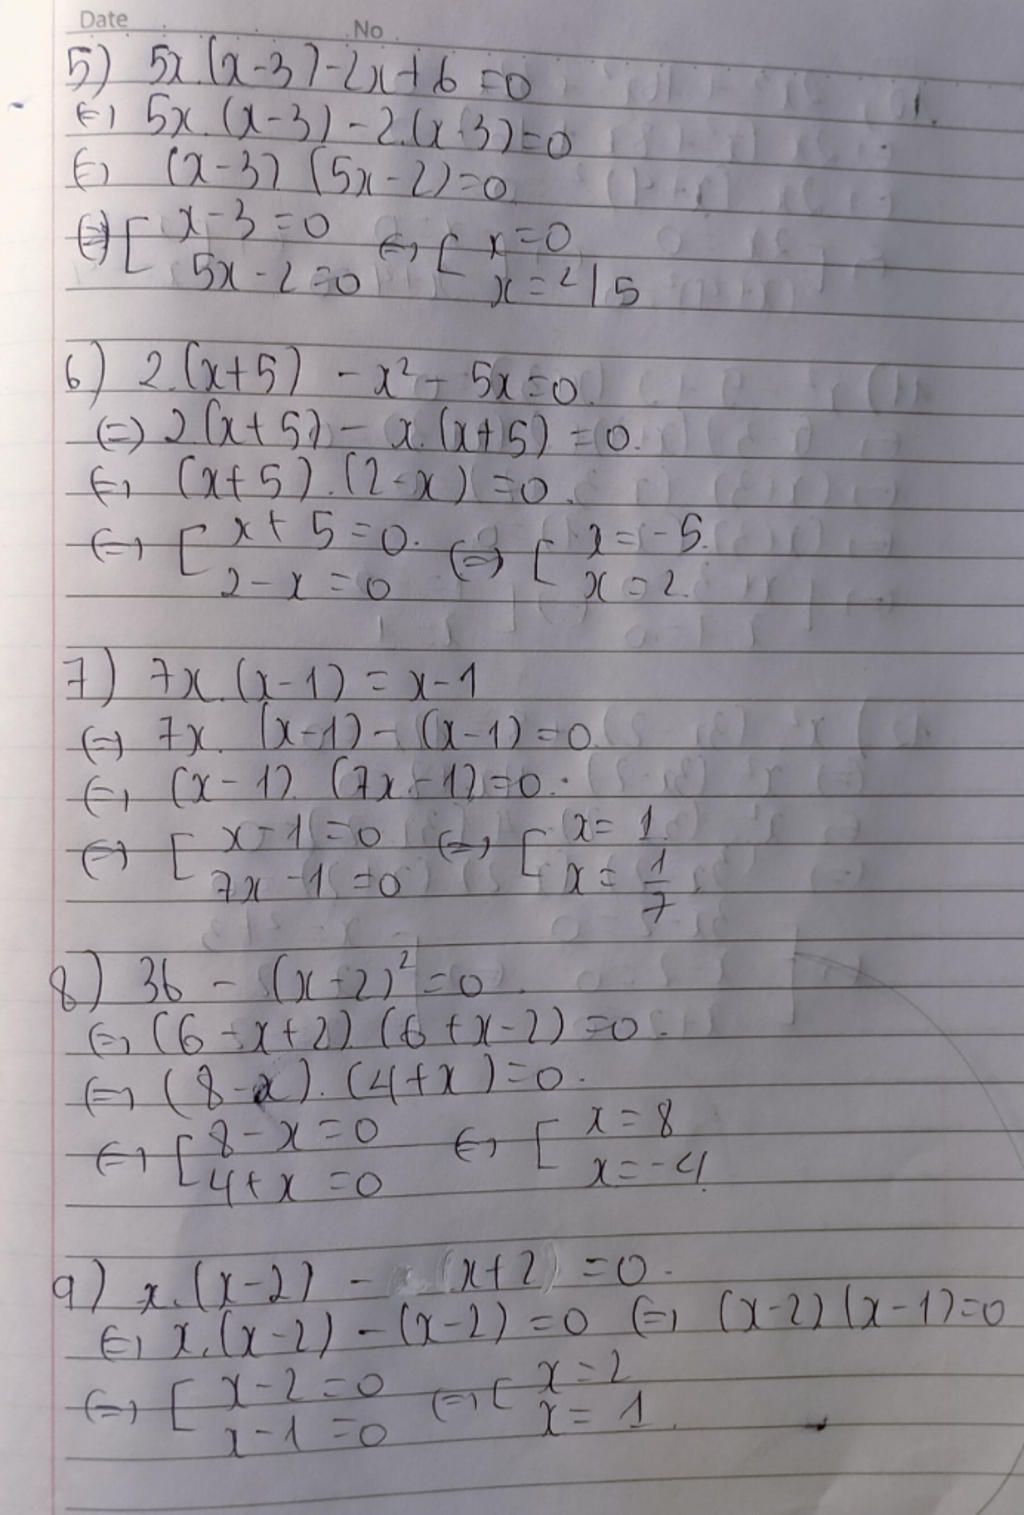 Date
No
5) 5x.(x-3)-2x+6=0
⇔ 5x.(x-3)-2.(x-3)=0
⇔ (x-3)(5x-2)=0
⇔ [ x-3=0 ⇔ [ x=0
5x-2=0 x=2/5
6) 2.(x+5) - x² - 5x=0.
(=) 2(x+5) - x.(x+5) =0.
⇔ (x+5).(2-x)=0.
⇔ [ x+5=0. ⇔ [ x=-5.
2-x=0 x=2.
7) 7x.(x-1)=x-1
⇔ 7x.(x-1)-(x-1)=0
⇔ (x-1).(7x-1)=0.
⇔ [ x-1=0 ⇔ [ x=1.
7x-1=0 x=1/7
8) 36 - (x-2)²=0.
⇔ (6-x+2)(6+x-2)=0.
⇔ (8-x).(4+x)=0.
⇔ [ 8-x=0 ⇔ [ x=8
4+x=0 x=-4
9) x.(x-2) - (x+2) =0.
⇔ x.(x-2)-(x-2)=0 ⇔ (x-2)(x-1)=0
⇔ [ x-2=0 ⇔ [ x=2
x-1=0 x=1.